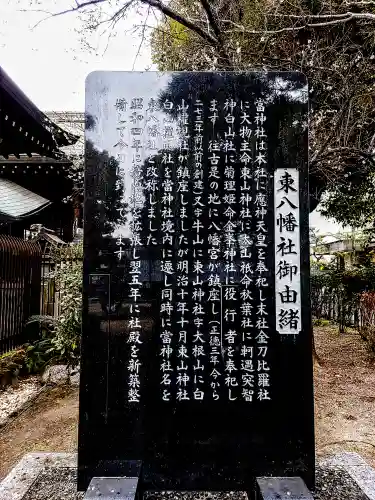 東八幡社御由緒
當神社は本社に應神天皇を奉祀し末社金刀比羅社
に大物主命東山神社に大山祇命秋葉社に軻遇突智
神白山社に菊理姫命金峯神社に役行者を奉祀し
ます 往古是の地に八幡宮が鎮座し(正徳三年今から
二七三年前以前の創建)又字牛山に東山神社字大根山に白
山社が鎮座しましたが明治十年十月東山神社
白山社を當神社境内に遷し同時に當神社名を
東八幡社と改称しました
昭和四年に境内を拡張し翌五年に社殿を新築整
備して今日に至って居ります